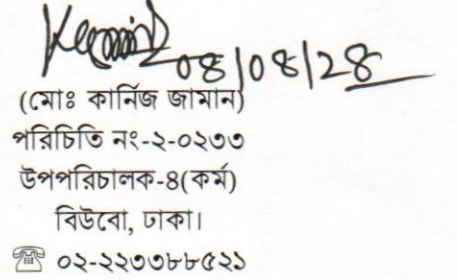 ০৪/০৪/২৪
(মোঃ কার্নিজ জামান)
পরিচিতি নং-২-০২৩৩
উপপরিচালক-৪(কর্ম)
বিউবো, ঢাকা।
☎ ০২-২২৩৩৮৮৫২১